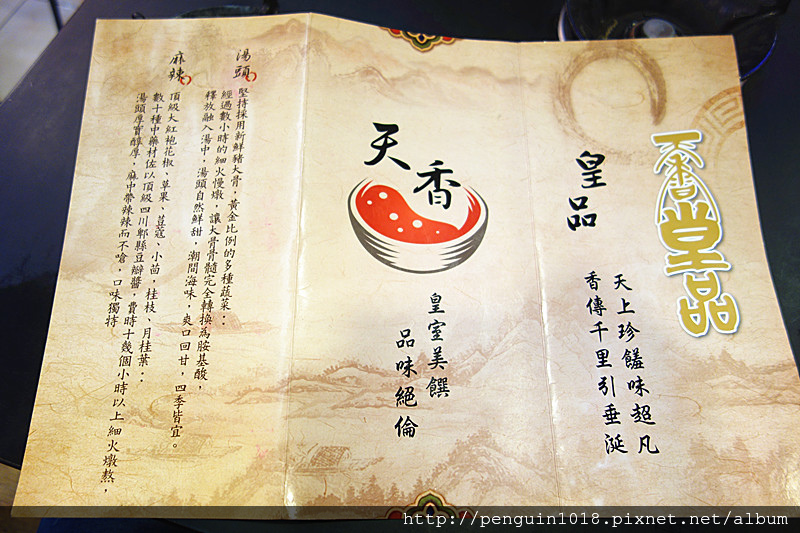 天香皇品
皇品
天上珍饈味超凡
香傳千里引垂涎
天香
皇室美饌
品味絕倫
湯頭
堅持採用新鮮豬大骨，黃金比例的多種蔬菜：
經過數小時的細火慢燉，讓大骨骨髓完全轉換為胺基酸，
釋放融入湯中，湯頭自然鮮甜，潮間海味，爽口回甘，四季皆宜。
麻辣
頂級大紅袍花椒、草果、荳蔻、小茴，桂枝、月桂葉：
數十種中藥材佐以頂級四川郫縣豆瓣醬，費時十幾個小時以上細火燉熬，
湯頭厚實醇厚，麻中帶辣辣而不嗆，口味獨特
http://penguin1018.pixnet.net/album